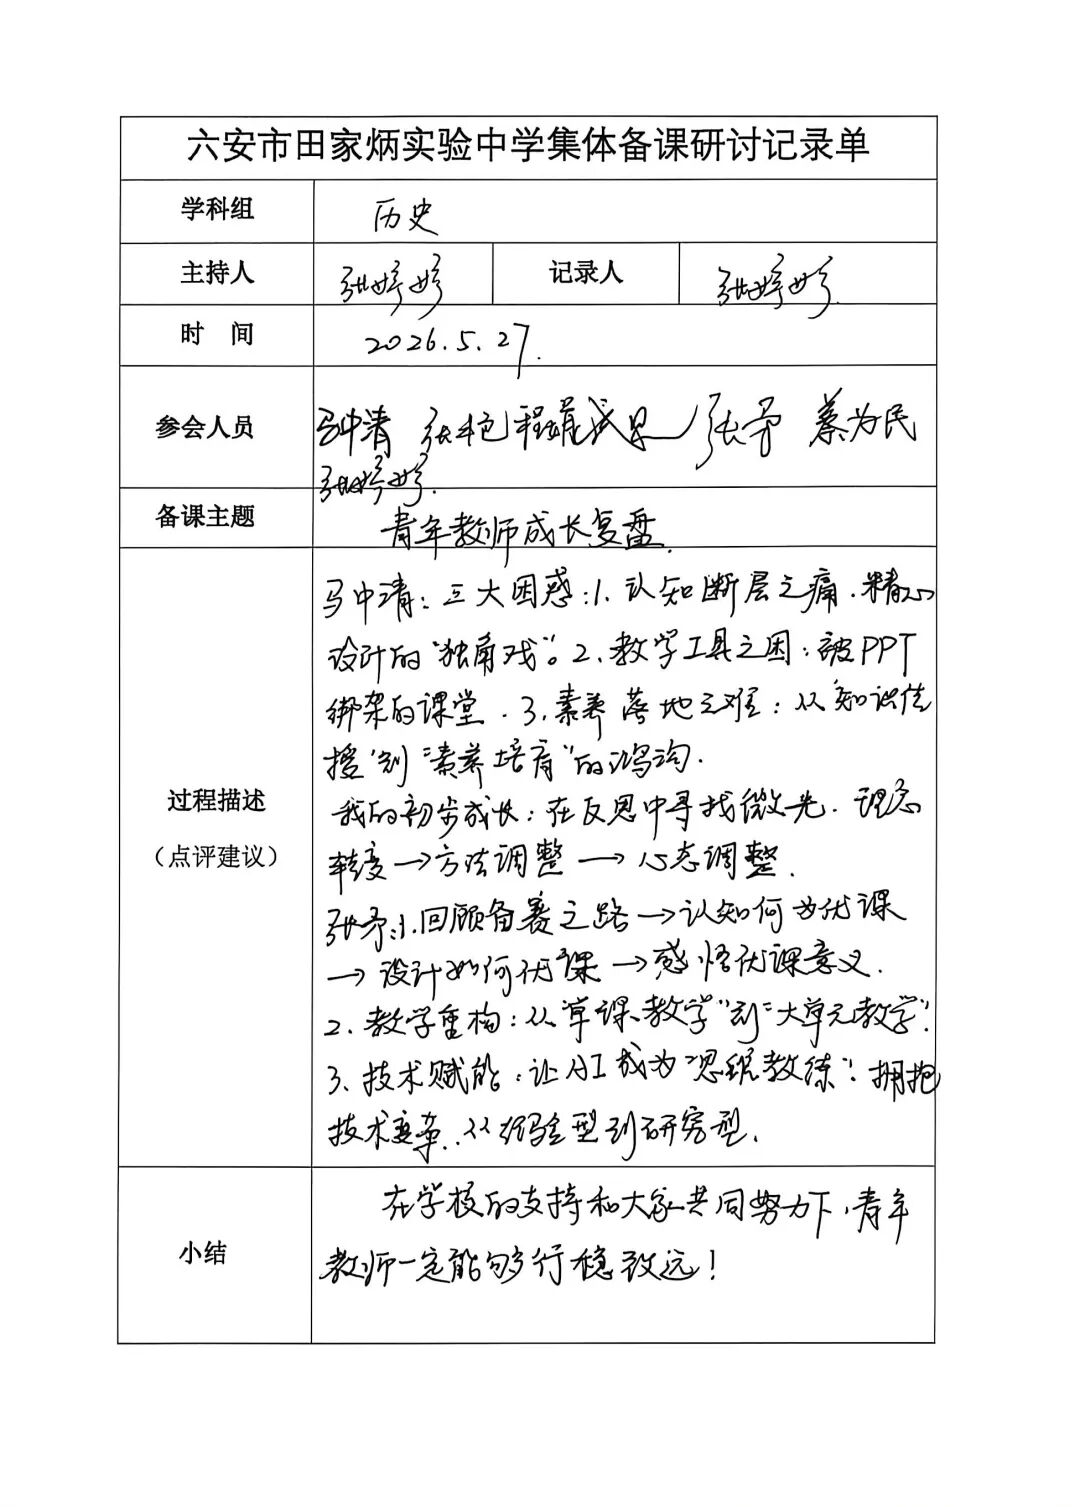 六安市田家炳实验中学集体备课研讨记录单
学科组 历史
主持人 张婷婷 记录人 张婷婷
时 间 2026.5.27.
参会人员 马中清 张 程 张矛 蔡为民
张婷婷.
备课主题 青年教师成长复盘.
过程描述
（点评建议）
马中清：三大困惑：1.认知断层之痛.精心
设计的“独角戏”。2、教学工具之困：被PPT
绑架的课堂.3.素养落地之难：从“知识传
授”到“素养培育”的鸿沟.
我的初步成长：在反思中寻找微光.理念
转变→方法调整→心态调整.
张矛：1.回顾备赛之路→认知何为优课
→设计如何优课→感悟优课意义.
2、教学重构：从“单课教学”到“大单元教学”.
3、技术赋能：让AI成为“思维教练”.拥抱
技术变革.从经验型到研究型.
小结
在学校的支持和大家共同努力下，青年
教师一定能够行稳致远！